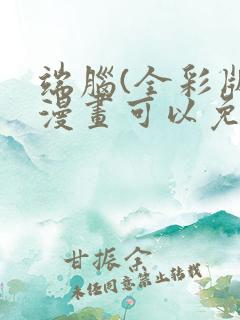 端腦(全彩版
漫畫可以免
甘振余
未经同意禁止转载